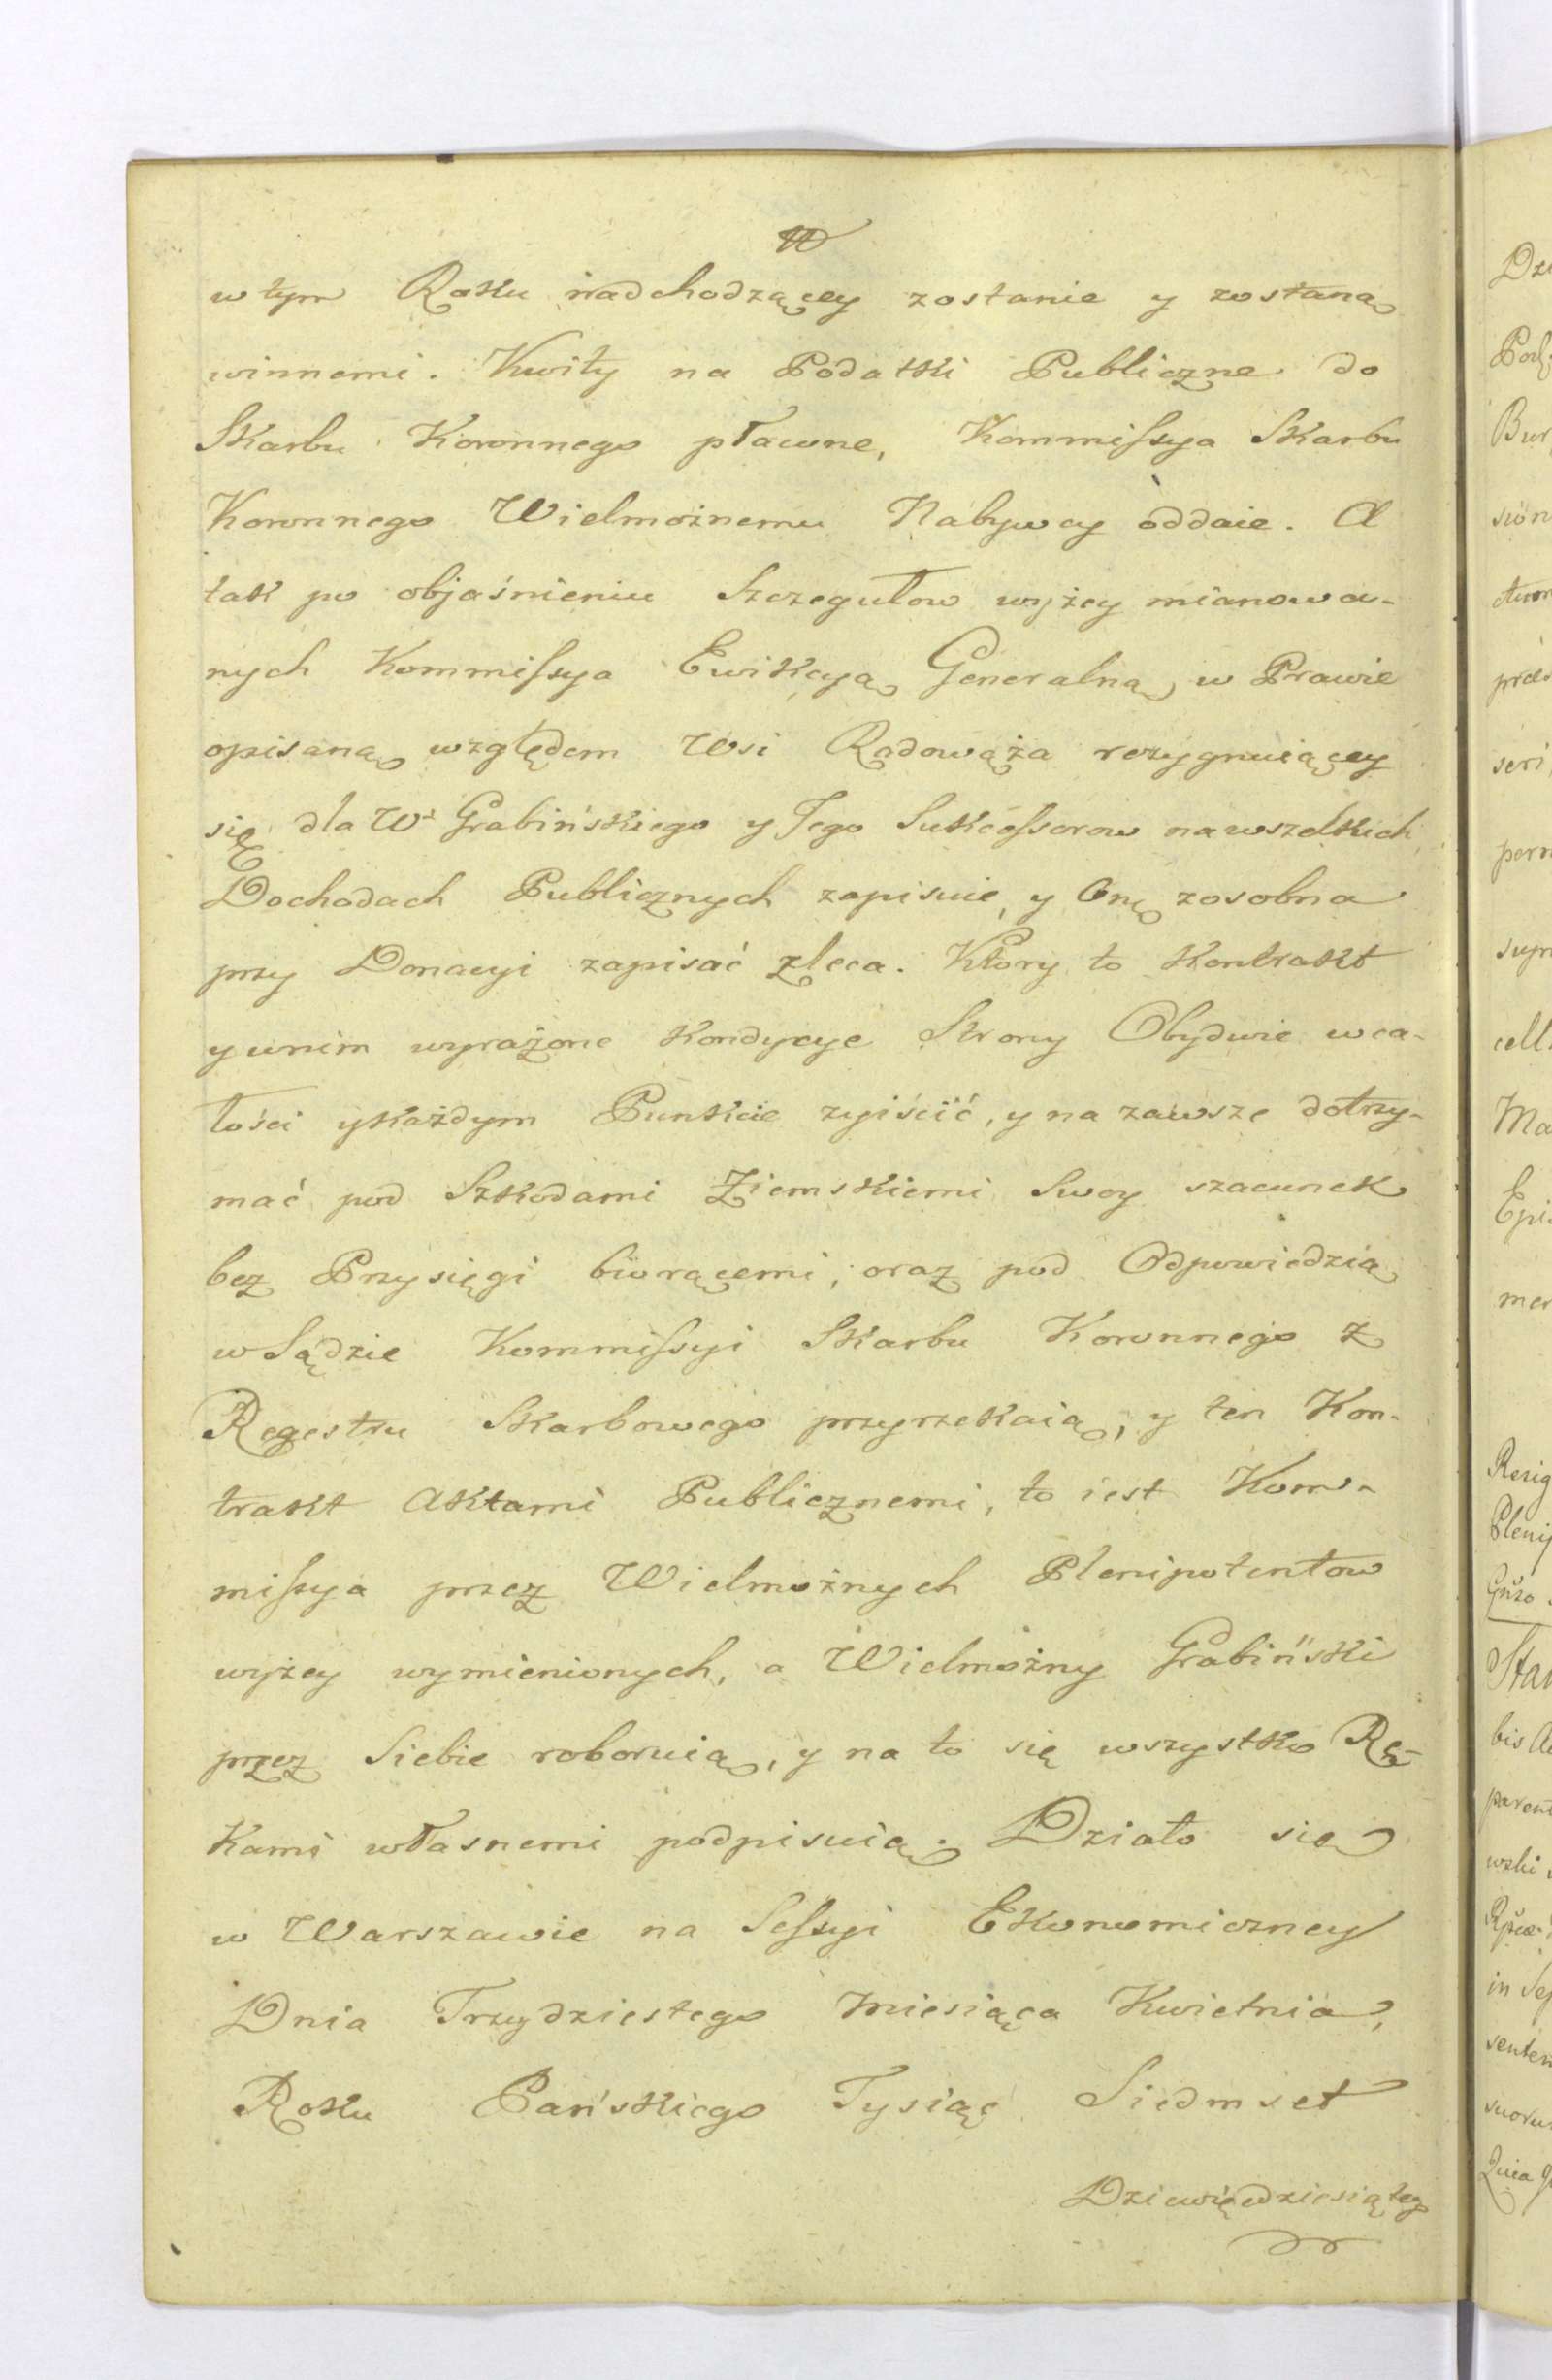 w tym Roku nadchodzącey zostanie y zostaną
winnemi. Kwity na Podatki Publiczne do
Skarbu Koronnego płacone, Kommissya Skarbu
Koronnego Wielmożnemu Nabywcy oddaie. A
tak po objaśnieniu Szczegułow wyżey mianowa-
nych Kommissya Ewikcyą Generalną, w Prawie
opisaną względem Wsi Radowąża rezygnuiącey
się dla Wo Grabińskiego y Jego Sukcessorow na wszelkich
Dochodach Publicznych zapisuie, y Onę zosobna
przy Donacyi zapisać zleca. Ktory to Kontrakt
y w nim wyrażone Kondycye Strony Obydwie w ca-
łości y każdym Punkcie ziścić, y na zawsze dotrzy-
mać pod Szkodami Ziemskiemi Swoy szacunek
bez Przysięgi biorącemi, oraz pod Odpowiedzią
w Sądzie Kommissyi Skarbu Koronnego z
Regestru Skarbowego przyrzekaią, y ten Kon-
trakt Aktami Publicznemi, to iest Kom-
missya przez Wielmożnych Plenipotentow
wyżey wymienionych, a Wielmożny Grabiński
przez Siebie roboruią, y na to się wszystko Rę-
kami własnemi podpisuią. Działo się
w Warszawie na Sessyi Ekonomiczney
Dnia Trzydziestego Miesiąca Kwietnia,
Roku Pańskiego Tysiąc Siedmset
Dziewięćdziesiątego
Dzi
Bur
cell
Ma
Epi
mer
Rezig
Plenip
Stan
bis
in
senten
suoru